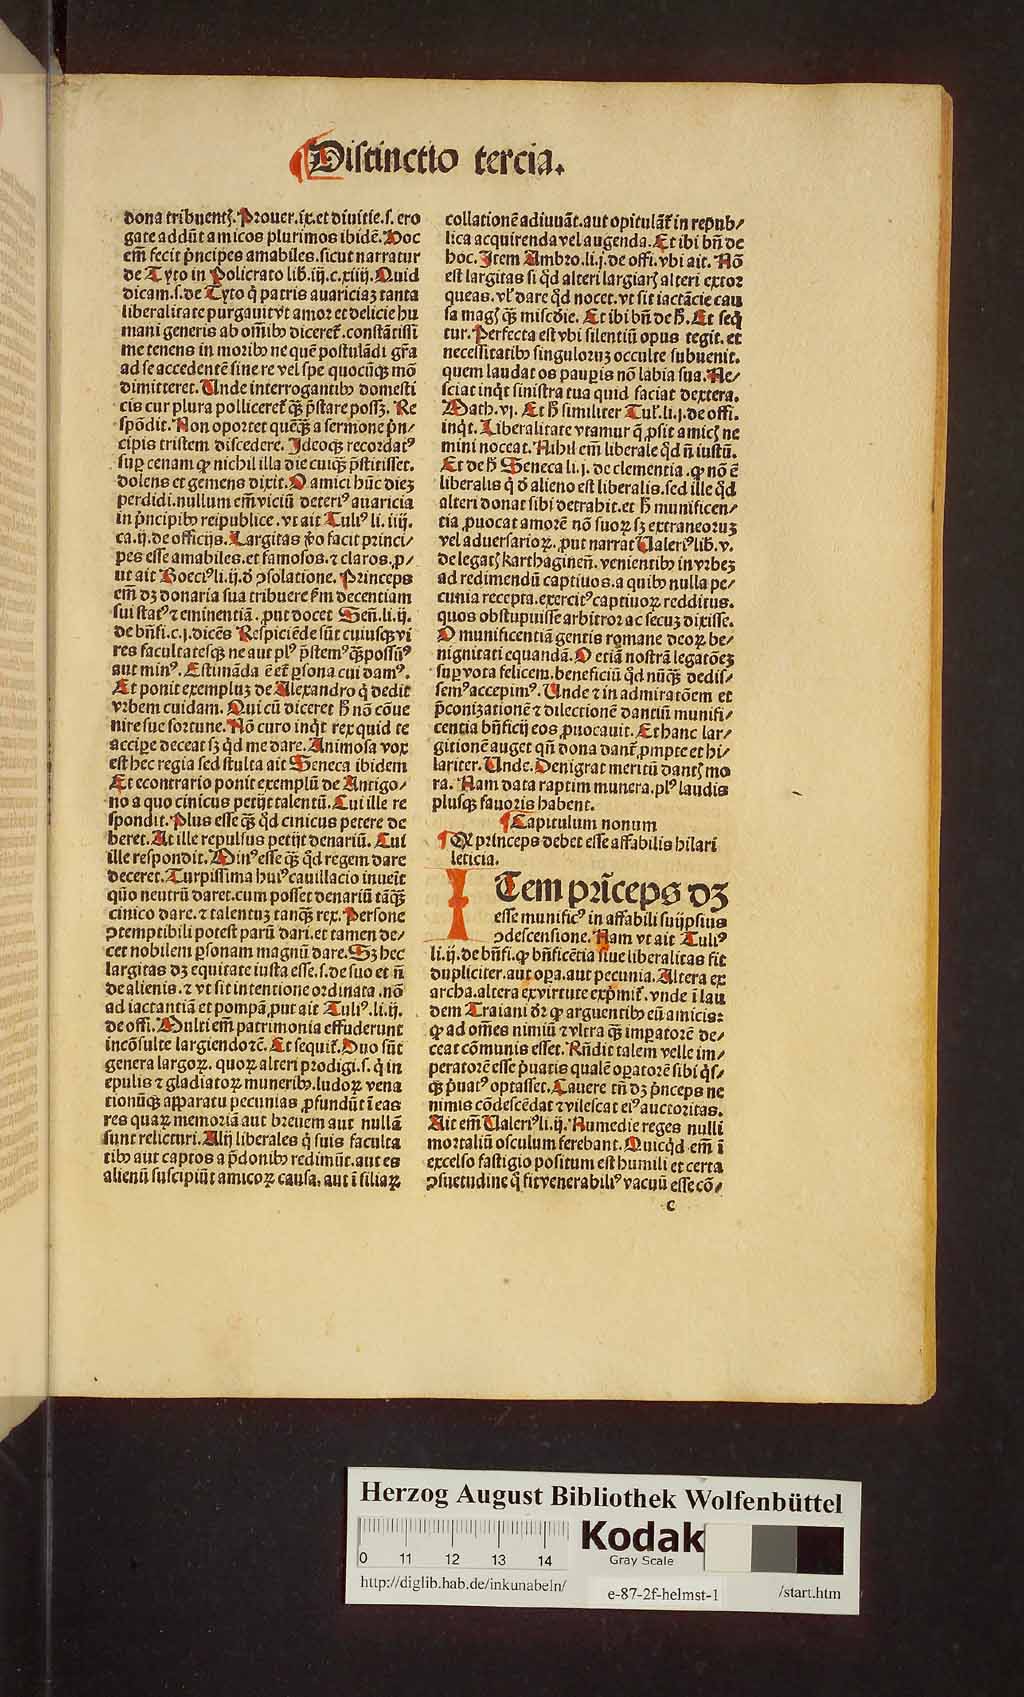 Distinctio tercia.
dona tribuentꝭ. Prouer. ix. et diuitie. s. ero
gate addūt amicos plurimos ibidē. Hoc
em̄ fecit p̄ncipes amabiles. sicut narratur
de Tyto in Policrato lib. iij. c. xiiij. Quid
dicam. s. de Tyto q̇ patris auariciaꝫ tanta
liberalitate purgauit vt amor et delicie hu
mani generis ab om̄ibꝰ diceret᷑. constātissi
me tenens in moribꝰ ne quē postulādi gr̄a
ad se accedentē sine re vel spe quocūqꝫ mō
dimitteret. Unde interrogantibꝰ domesti
cis cur plura polliceret᷑ qꝫ p̄stare possꝫ. Re
spōdit. Non oportet quēqꝫ a sermone p̄n⸗
cipis tristem discedere. Ideoqꝫ recordatꝰ
suꝑ cenam ꝙ nichil illa die cuiqꝫ p̄stitisset.
dolens et gemens dixit. O amici hūc dieꝫ
perdidi. nullum em̄ viciū deteriꝰ auaricia
in p̄ncipibꝰ reipublice. vt ait Tuliꝰ li. iiij.
ca. ij. de officijs. Largitas ꝟo facit princi⸗
pes esse amabiles. et famosos. ⁊ claros. ꝓ⸗
ut ait Boeciꝰ li. ij. ď ↄsolatione. Princeps
em̄ dꝫ donaria sua tribuere ẜm decentiam
sui statꝰ ⁊ eminentiā. ꝓut docet Señ. li. ij.
de bn̄fi. c. j. dicēs Respiciēde sūt cuiusqꝫ vi
res facultatesqꝫ ne aut plꝰ p̄stemꝰ qꝫ possūꝰ
aut minꝰ. Estimāda ē et᷑ ꝑsona cui damꝰ.
Et ponit exempluꝫ de Alexandro q̇ dedit
vrbem cuidam. Qui cū diceret ħ nō cōue
nire sue fortune. Nō curo inqt rex quid te
accipe deceat sꝫ qd me dare. Animosa vox
est hec regia sed stulta ait Seneca ibidem
Et econtrario ponit exemplū de Antigo⸗
no a quo cinicus petijt talentū. Cui ille re
spondit. Plus esse qꝫ qd cinicus petere de
beret. At ille repulsus petijt denariū. Cui
ille respondit. Minꝰ esse qꝫ qd regem dare
deceret. Turpissima huiꝰ cauillacio inueīt
quo neutrū daret. cum posset denariū tāqꝫ
cinico dare. ⁊ talentuꝫ tanqꝫ rex. Persone
ↄtemptibili potest parū dari. et tamen de⸗
cet nobilem ꝑsonam magnū dare. Sꝫ hec
largitas dꝫ equitate iusta esse. s. de suo et n̄
de alienis. ⁊ vt sit intentione ordinata. nō
ad iactantiā et pompā ꝓut ait Tuliꝰ. li. ij.
de offi. Multi em̄ patrimonia effuderunt
incōsulte largiendo ⁊c̄. Et sequit᷑. Duo sūt
genera largoꝝ. quoꝝ alteri prodigi. s. q̇ in
epulis ⁊ gladiatoꝝ muneribꝰ. ludoꝝ vena
tionūqꝫ apparatu pecunias ꝓfundūt ī eas
res quaꝝ memoriā aut breuem aut nullā
sunt relicturi. Alij liberales q̇ suis faculta
tibꝰ aut captos a p̄donibꝰ redimūt. aut es
alienū suscipiūt amicoꝝ causa. aut ī filiaꝝ
collationē adiuuāt. aut opitulāt᷑ in repub⸗
lica acquirenda vel augenda. Et ibi bn̄ de
hoc. Item Ambro. li. j. de offi. vbi ait. Nō
est largitas si qd alteri largiarꝭ alteri extor
queas. vl᷑ dare qd nocet. vt sit iactācie cau
sa magꝭ qꝫ mīscďie. Et ibi bn̄ de ħ. Et seq̄
tur. Perfecta est vbi silentiū opus tegit. et
necessitatibꝰ singuloruꝫ occulte subuenit.
quem laudat os pauꝑis nō labia sua. Ne⸗
sciat inqt sinistra tua quid faciat dextera.
Math. vj. Et ħ similiter Tul᷑. li. j. de offi.
inqt. Liberalitate vtamur q̄ ꝓsit amicꝭ ne
mini noceat. Nihil em̄ liberale qd n̄ iustū.
Et de ħ Seneca li. j. de clementia. ꝙ nō ē
liberalis q̇ ď alieno est liberalis. sed ille qd
alteri donat sibi detrahit. et ħ munificen⸗
tia ꝓuocat amorē nō suoꝝ sꝫ extraneoruꝫ
vel aduersarioꝝ. ꝓut narrat Ualeriꝰ lib. v.
de legatꝭ karthagineñ. venientibꝰ in vrbeꝫ
ad redimendū captiuos. a quibꝰ nulla pe⸗
cunia recepta. exercitꝰ captiuoꝝ redditus.
quos obstupuisse arbitror ac secuꝫ dixisse.
O munificentiā gentis romane deoꝝ be⸗
nignitati equandā. O etiā nostrā legatōeꝫ
suꝑ vota felicem. beneficiū qd nūqꝫ dedis⸗
semꝰ accepimꝰ. Unde ⁊ in admiratōem et
p̄conizationē ⁊ dilectionē dantiū munifi⸗
centia bn̄ficij eos ꝓuocauit. Et hanc lar⸗
gitionē auget qn̄ dona dant᷑ ꝓmpte et hi⸗
lariter. Unde. Denigrat meritū dantꝭ mo
ra. Nam data raptim munera. plꝰ laudis
plusqꝫ fauoris habent.
¶ Capitulum nonum
¶ Qꝙ princeps debet esse affabilis hilari
leticia.
ITem prīceps dꝫ
esse munificꝰ in affabili sui ipsius
ↄdescensione. Nam vt ait Tuliꝰ
li. ij. de bn̄fi. ꝙ bn̄ficētia siue liberalitas fit
dupliciter. aut oꝑa. aut pecunia. Altera ex
archa. altera ex virtute exp̄mit᷑. vnde ī lau
dem Traiani dr̄ ꝙ arguentibꝰ eū amicis:
ꝙ ad om̄es nimiū ⁊ vltra qꝫ imꝑatorē de⸗
ceat cōmunis esset. Rn̄dit talem velle im⸗
peratorē esse p̄uatis qualē oꝑatorē sibi q̇s⸗
qꝫ p̄uatꝰ optasset. Cauere tn̄ dꝫ p̄nceps ne
nimis cōdescēdat ⁊ vilescat eiꝰ auctoritas.
Ait em̄ Ualeriꝰ li. ij. Numedie reges nulli
mortaliū osculum ferebant. Quicqd em̄ ī
excelso fastigio positum est humili et certa
ↄsuetudine q̇ fit venerabiliꝰ vacuū esse cō⸗
c
Herzog August Bibliothek Wolfenbüttel
Kodak
Gray Scale
0 11 12 13 14
http://diglib.hab.de/inkunabeln/
e-87-2f-helmst-1
/start.htm